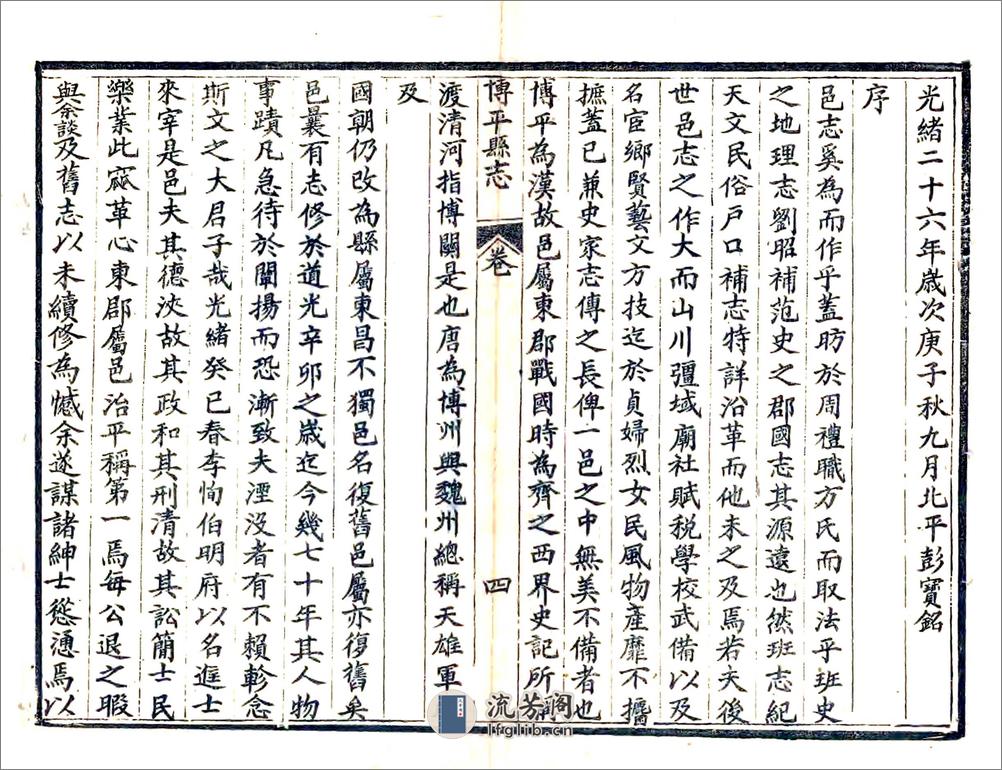 光緒二十六年歲次庚子秋九月北平彭寶銘
序
邑志奚為而作乎蓋昉於周禮職方氏而取法乎班史
之地理志劉昭補范史之郡國志其源遠也然班志紀
天文民俗戶口補志特詳沿革而他未之及焉若夫後
世邑志之作大而山川彊域廟社賦稅學校武備以及
名宦鄉賢藝文方技迄於貞婦烈女民風物產靡不攟
摭蓋已兼史家志傳之長俾一邑之中無美不備者也
博平為漢故邑屬東郡戰國時為齊之西界史記所
博平縣志 卷 四
渡清河指博關是也唐為博州與魏州總稱天雄軍
及
國朝仍改為縣屬東昌不獨邑名復舊邑屬亦復舊矣
邑曩有志修於道光辛卯之歲迄今幾七十年其人物
事蹟凡急待於闡揚而恐漸致夫湮沒者有不賴軫念
斯文之大君子哉光緒癸巳春李恂伯明府以名進士
來宰是邑夫其德浹故其政和其刑清故其訟簡士民
樂業此寐革心東郡屬邑治平稱第一焉每公退之暇
與余談及舊志以未續修為憾余遂謀諸紳士慫恿焉以
流芳閣
lfglib.cn